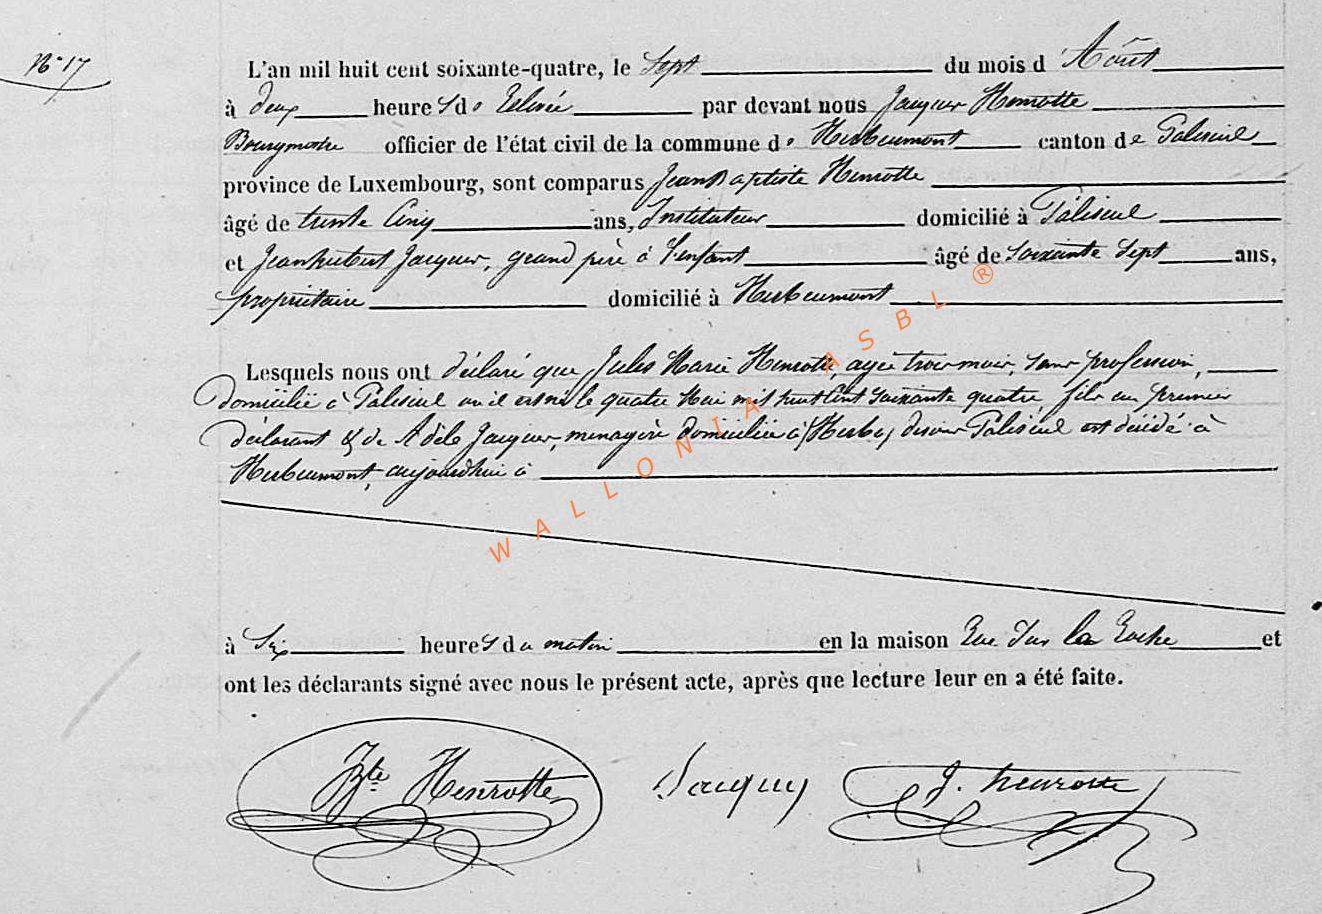 N° 17
L'an mil huit cent soixante-quatre, le Sept du mois d'Août
à deux heures de Relevée par devant nous Jacques Henrotte
Bourgmestre officier de l'état civil de la commune de Herbeumont canton de Paliseul
province de Luxembourg, sont comparus Jean Baptiste Henrotte
âgé de trente Cinq ans, Instituteur domicilié à Paliseul
et Jean hubert Jacques, grand père à l'enfant âgé de Soixante Sept ans,
propriétaire domicilié à Herbeumont
Lesquels nous ont déclaré que Jules Marie Henrotte, agé trois mois, sans profession,
domicilié à Paliseul où il est né le quatre Mai mil huit Cent soixante quatre, fils au premier
déclarant & de Adèle Jacques, menagère domiciliée à Paliseul est décédé à
Herbeumont, aujourdhui à
à Six heures du matin en la maison Rue Sur la Roche et
ont les déclarants signé avec nous le présent acte, après que lecture leur en a été faite.
JBte Henrotte Jacques J. henrotte
WALLONIA ASBL ®